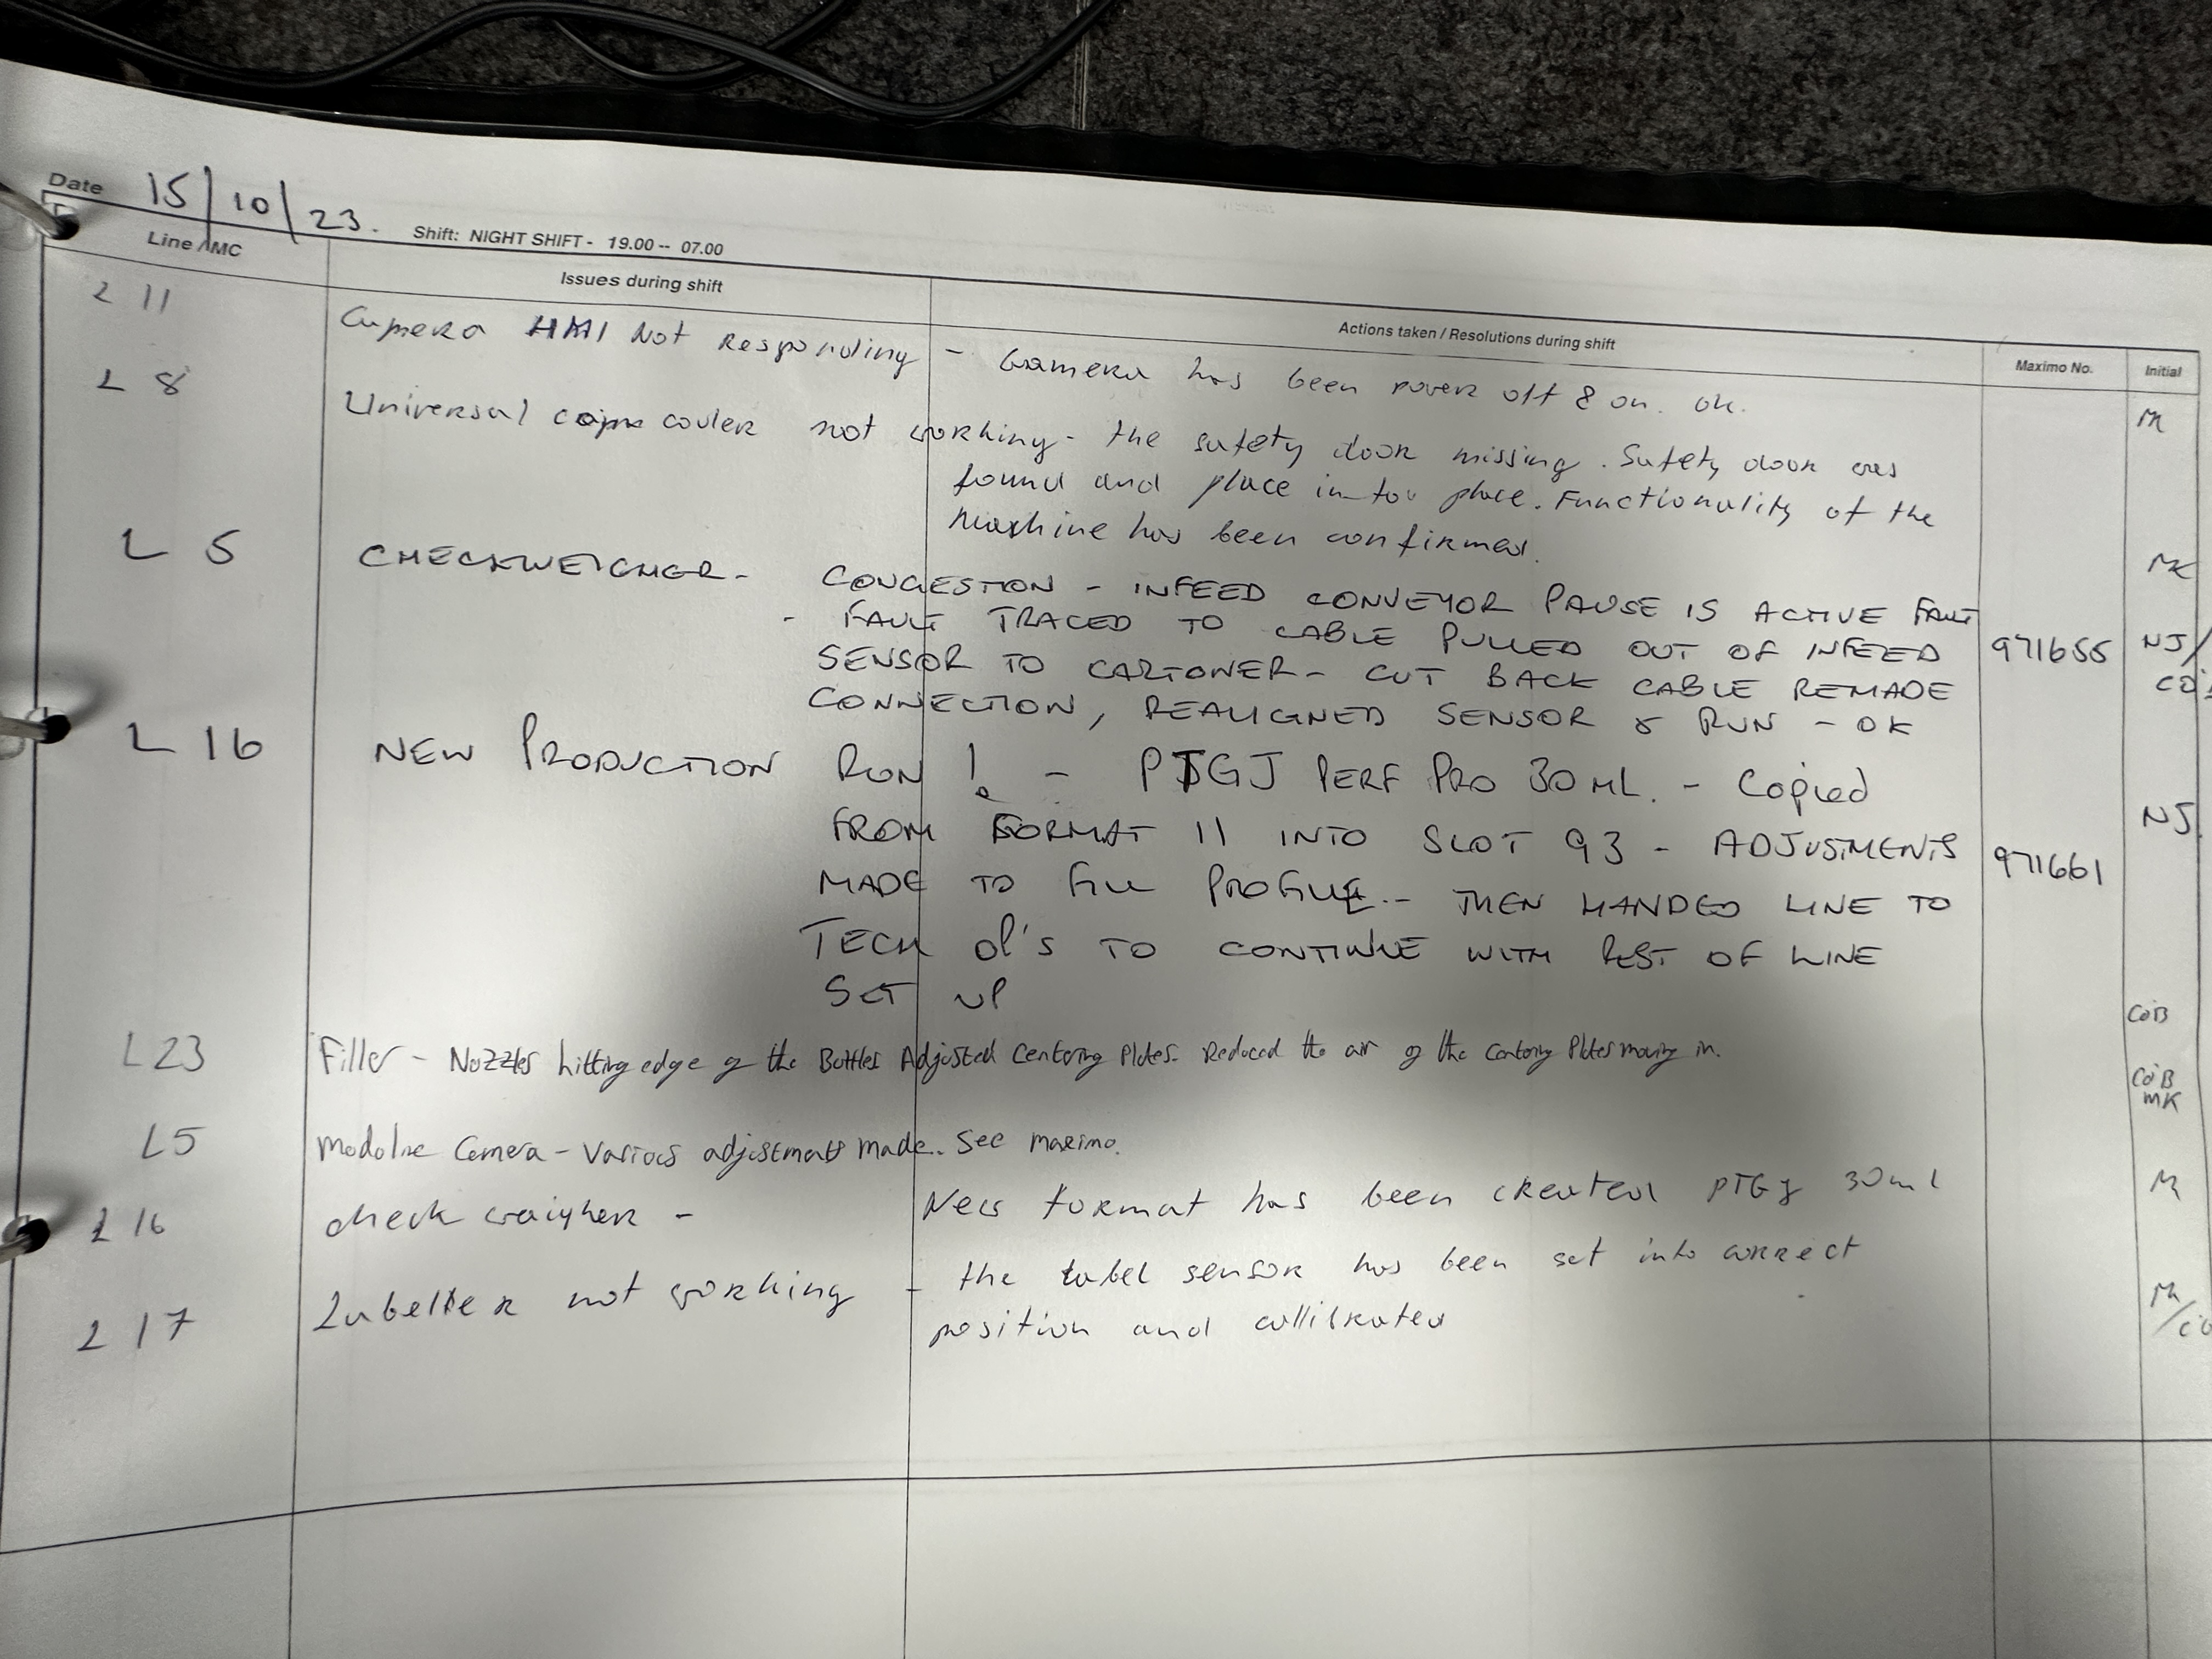 Date 15/10/23.
Shift: NIGHT SHIFT - 19.00 -- 07.00
Line / MC
Issues during shift
Actions taken / Resolutions during shift
Maximo No.
Initial
L 11 Camera HMI Not Responding - Camera has been power off & on. ok.
L 8 Universal couler not working - the safety door missing. Safety door was
found and place in place. Functionality of the
Mashine has been confirmed.
MK
L 5 CHECKWEIGHER - CONGESTION - INFEED CONVEYOR PAUSE IS ACTIVE FAULT
- FAULT TRACED TO CABLE PULLED OUT OF INFEED 971655 NJ/
SENSOR TO CARTONER - CUT BACK CABLE REMADE
CONNECTION, REALIGNED SENSOR & RUN - OK
L 16 NEW PRODUCTION RUN! - PTGJ PERF PRO 30ML. - Copied
FROM FORMAT 11 INTO SLOT 93 - ADJUSTMENTS NJ.
MADE TO FILL PROFILE - THEN HANDED LINE TO 971661
TECH OP'S TO CONTINUE WITH REST OF LINE
SET UP
L23 Filler - Nozzles hitting edge of the Bottles Adjusted Centering Plates. Reduced the air of the Centering Plates moving in. CoB
L5 Camera - Various adjustments made. See maximo. CoB
MK
L 16 check weigher - New format has been created PTGJ 30ml
L 17 Labeller not working - the label sensor has been set into correct
position and callibrated